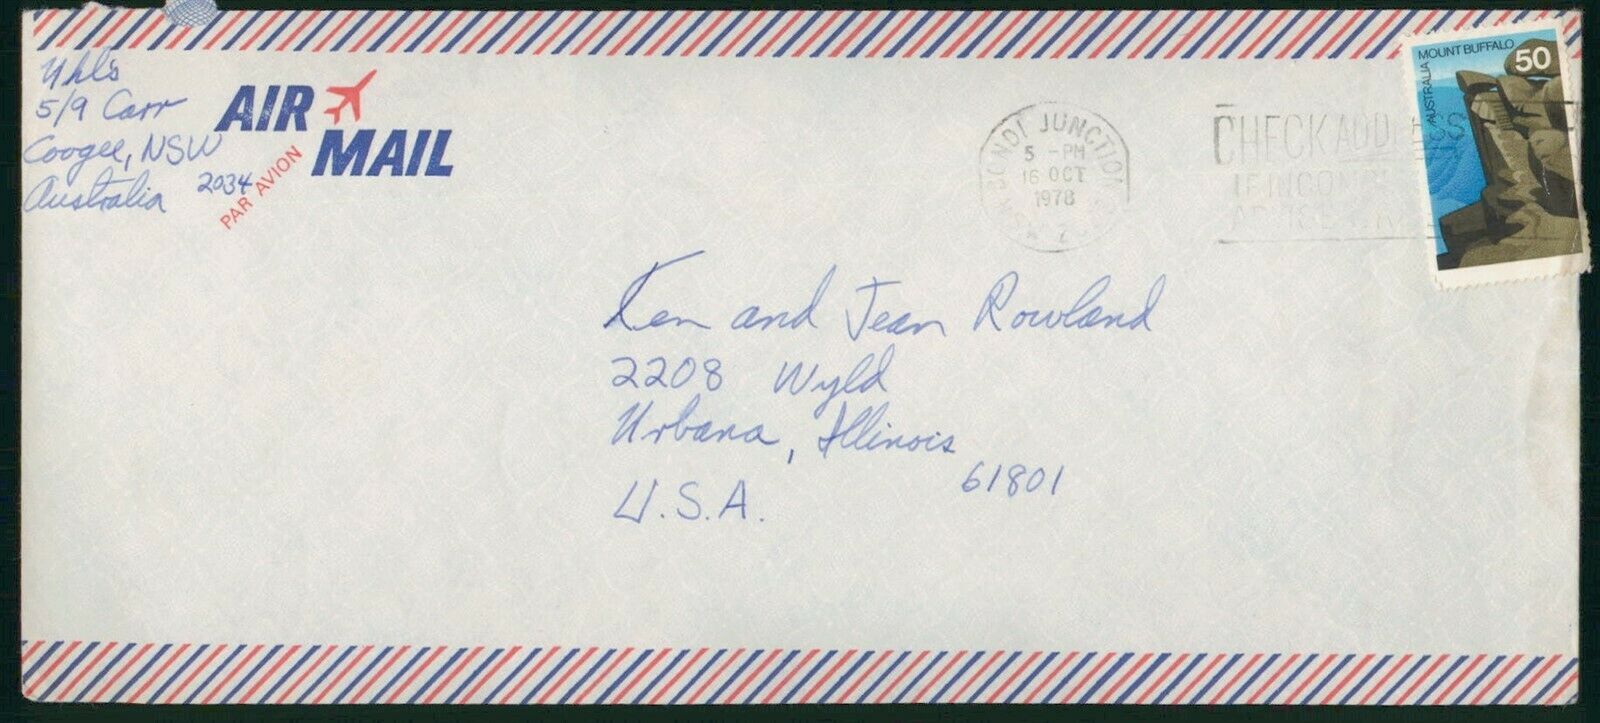 Uhls
5/9 Carr
Coogee, NSW
Australia 2034
AIR
MAIL
PAR AVION
BONDI JUNCTION
5 - PM
16 OCT
1978
CHECK
IF
AUSTRALIA MOUNT BUFFALO
50
Ken and Jean Rowland
2208 Wyld
Urbana, Illinois
61801
U.S.A.